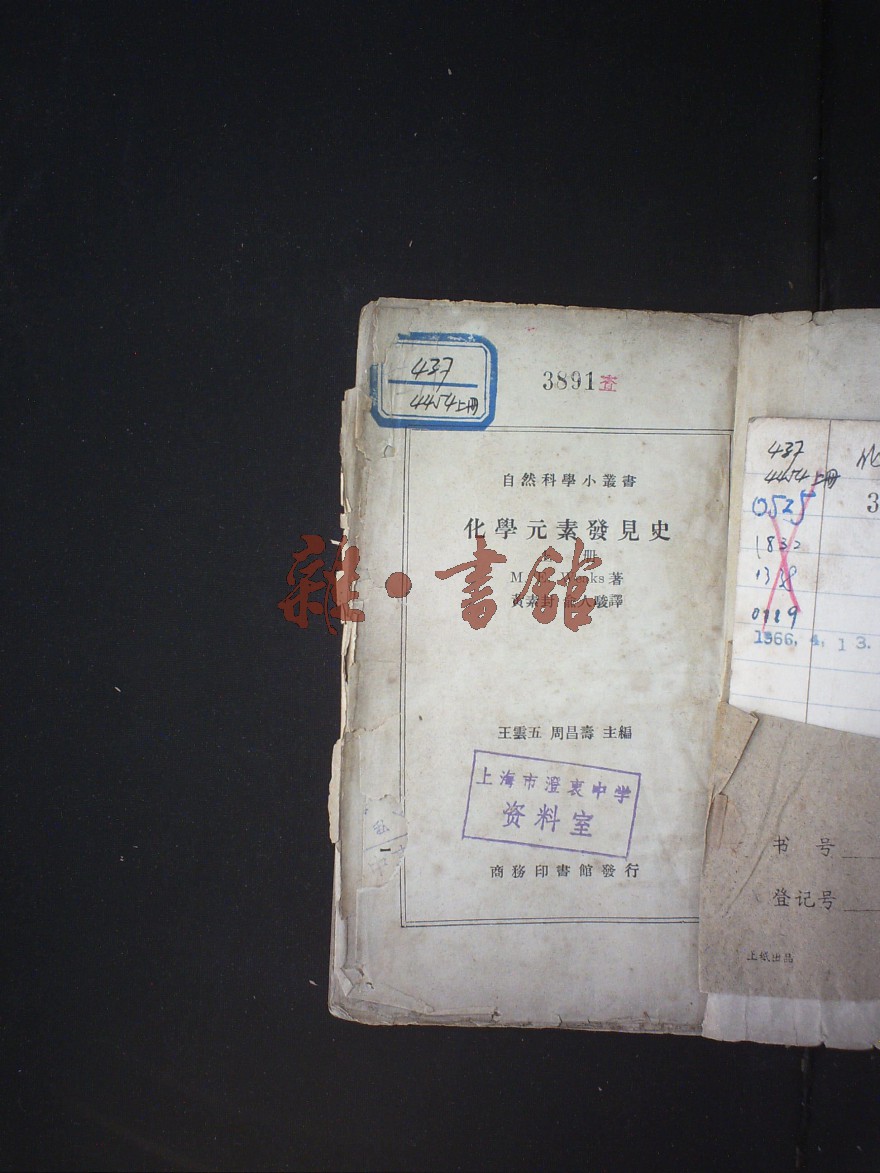 437
4454上册
3891查
自然科學小叢書
化學元素發見史
册
M. E. Weeks 著
黃素封 人駿譯
雜·書館
王雲五 周昌壽 主編
上海市澄衷中学
资料室
商務印書館發行
437
4454上册
3
0525
1832
0119
1966. 4. 13.
书号
登记号
上纸出品